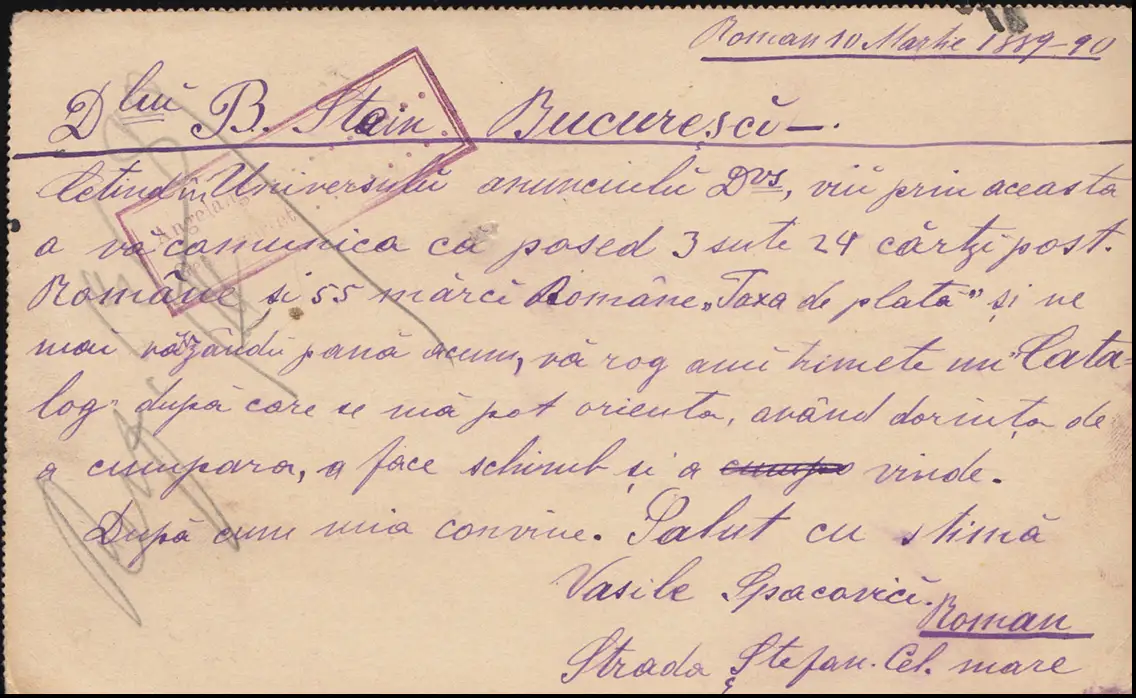 Roman 10 Martie 1889-90
Dlui B. Stein Bucureșci —.
Cetind în Universulŭ anunciulŭ Dvs, viŭ prin aceasta
a va comunica că posed 3 sute 24 cărtzi post.
Române si 55 mărci Române „Taxa de plată” și ne
mai văzăndŭ pană acum, vă rog ami trimete un "Cata-
log" după care se mă pot orienta, avănd dorința de
a cumpara, a face schimb și a vinde.
După cum mia convine. Salut cu stimă
Vasile Spacovici.
Roman
Strada Ștefan. Cel. mare
Angelangt